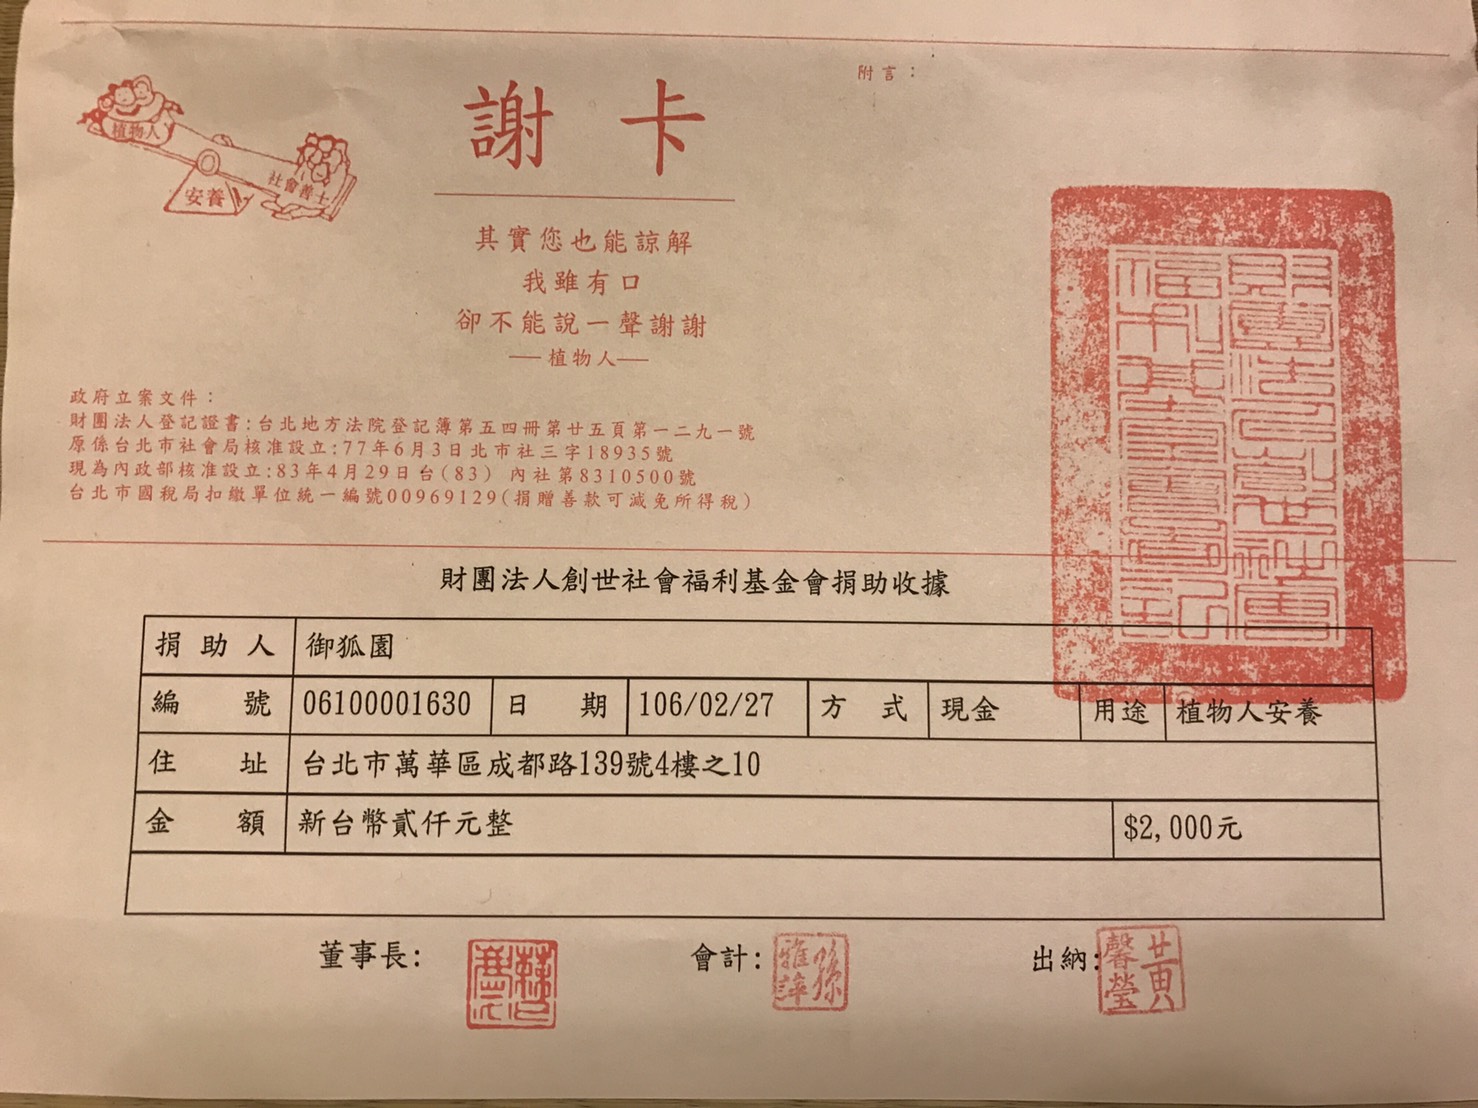 植物人
安養
社會善士
謝卡
附言：
其實您也能諒解
我雖有口
卻不能說一聲謝謝
──植物人──
政府立案文件：
財團法人登記證書:台北地方法院登記簿第五四冊第廿五頁第一二九一號
原係台北市社會局核准設立:77年6月3日北市社三字18935號
現為內政部核准設立:83年4月29日台(83) 內社第8310500號
台北市國稅局扣繳單位統一編號00969129(捐贈善款可減免所得稅)
財團法人創世社會福利基金會捐助收據
捐助人 御狐園
編號 06100001630 日期 106/02/27 方式 現金 用途 植物人安養
住址 台北市萬華區成都路139號4樓之10
金額 新台幣貳仟元整 $2,000元
董事長: 會計: 出納:
黃馨瑩